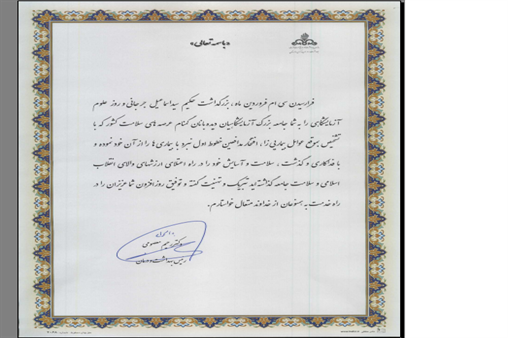 «باسمه تعالی»
فرارسیدن سی ام فروردین ماه ، بزرگداشت حکیم سید اسماعیل جرجانی و روز علوم
آزمایشگاهی را به شما جامعه بزرگ آزمایشگاهیان و دیده بانان گمنام عرصه های سلامت کشور که با
تشخیص بموقع عوامل بیماری زا ، افتخار مدافعین خطوط اول نبرد با بیماری ها را از آن خود نموده و
با فداکاری و گذشت ، سلامت و آسایش خود را در راه اعتلای ارزشهای والای انقلاب
اسلامی و سلامت جامعه گذاشته اید تبریک و تهنیت گفته و توفیق روزافزون شما عزیزان را در
راه خدمت به همنوعان از خداوند متعال خواستارم.
دکتر معصومی
رئیس بهداشت و درمان